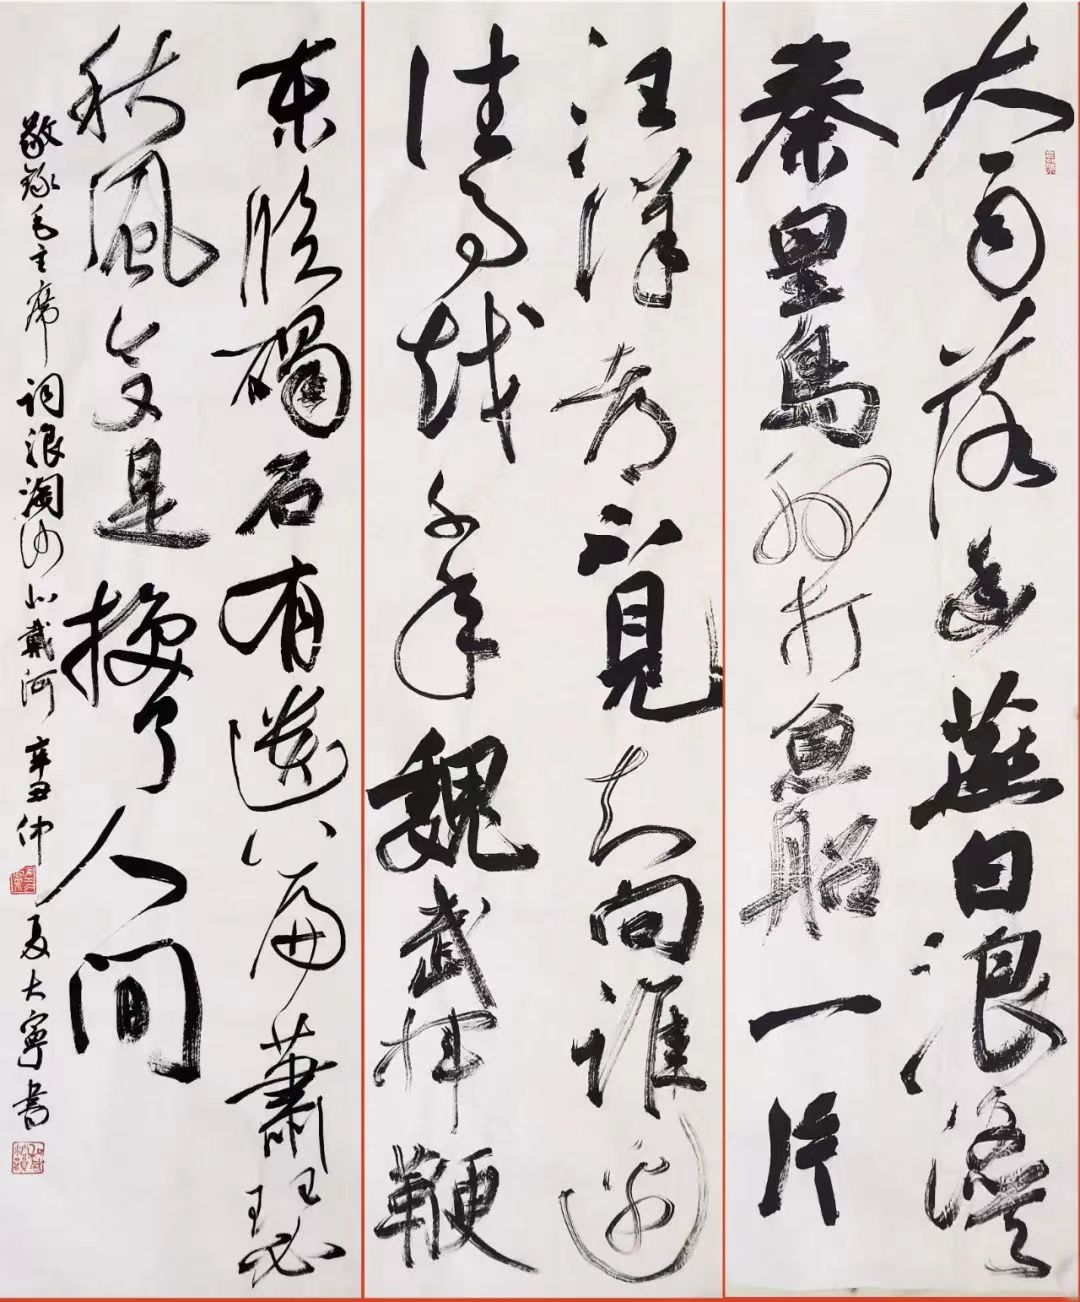 大雨落幽燕白浪滔天
秦皇島外打魚船一片
汪洋都不見知向誰邊
往事越千年魏武揮鞭
東臨碣石有遺篇蕭瑟
秋風今又是換了人間
敬錄毛主席词浪淘沙北戴河 辛丑仲夏大寧書